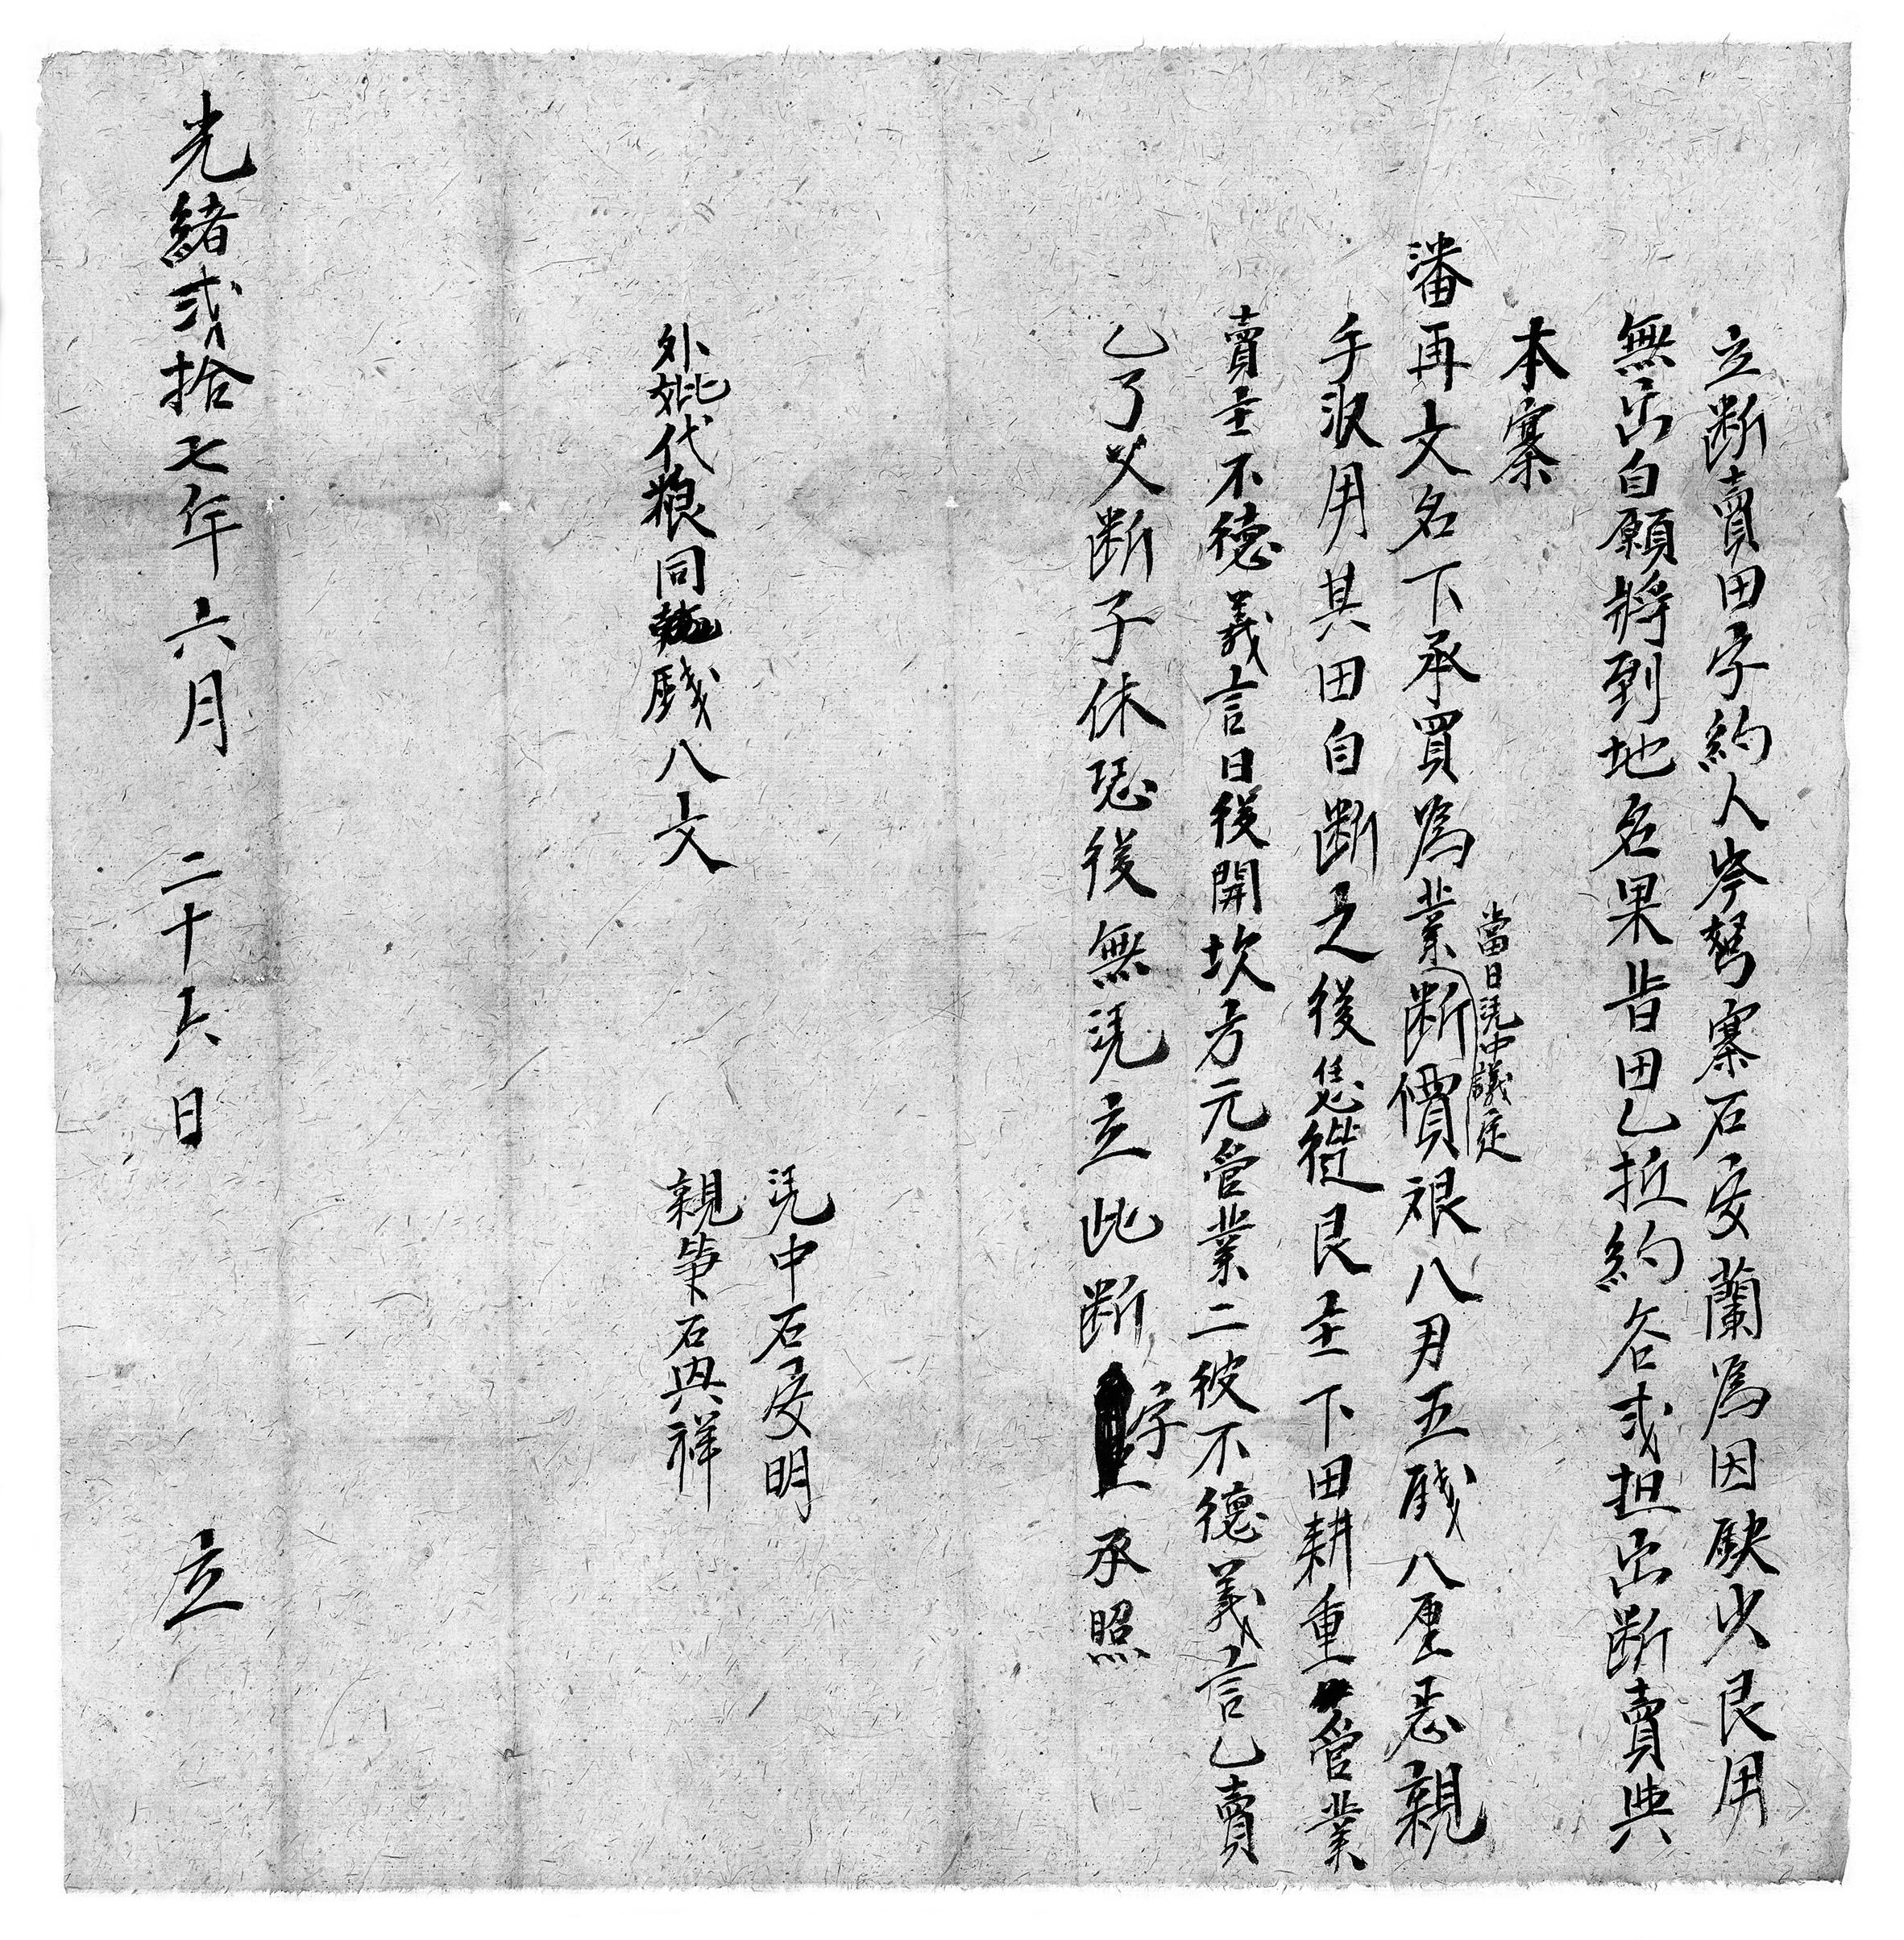 立断賣田字約人岑努寨石安蘭為因缺少艮用
無出自願將到地名果皆田乙坵約谷弍担出断賣典
本寨
潘再文名下承買為業断價銀八月五戔八厘悉親
當日凴中議定
手汲用其田自断之後恁從艮主下田耕重管業
賣主不德義言日後開坎方元管業二彼不德義言乙賣
乙了父断子休恐後無凴立此断字承照
外批代粮同戔八文
凴中石安明
親筆石興祥
光緒弍拾七年六月二十六日 立